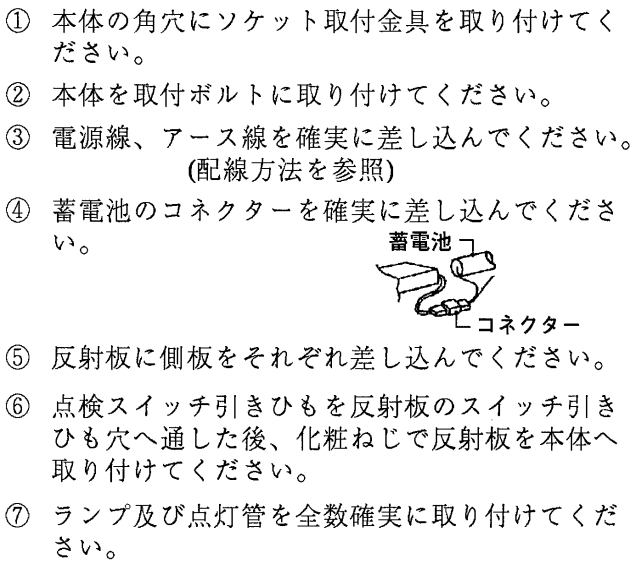 ① 本体の角穴にソケット取付金具を取り付けてく
ださい。
② 本体を取付ボルトに取り付けてください。
③ 電源線、アース線を確実に差し込んでください。
(配線方法を参照)
④ 蓄電池のコネクターを確実に差し込んでくださ
い。
蓄電池
コネクター
⑤ 反射板に側板をそれぞれ差し込んでください。
⑥ 点検スイッチ引きひもを反射板のスイッチ引き
ひも穴へ通した後、化粧ねじで反射板を本体へ
取り付けてください。
⑦ ランプ及び点灯管を全数確実に取り付けてくだ
さい。